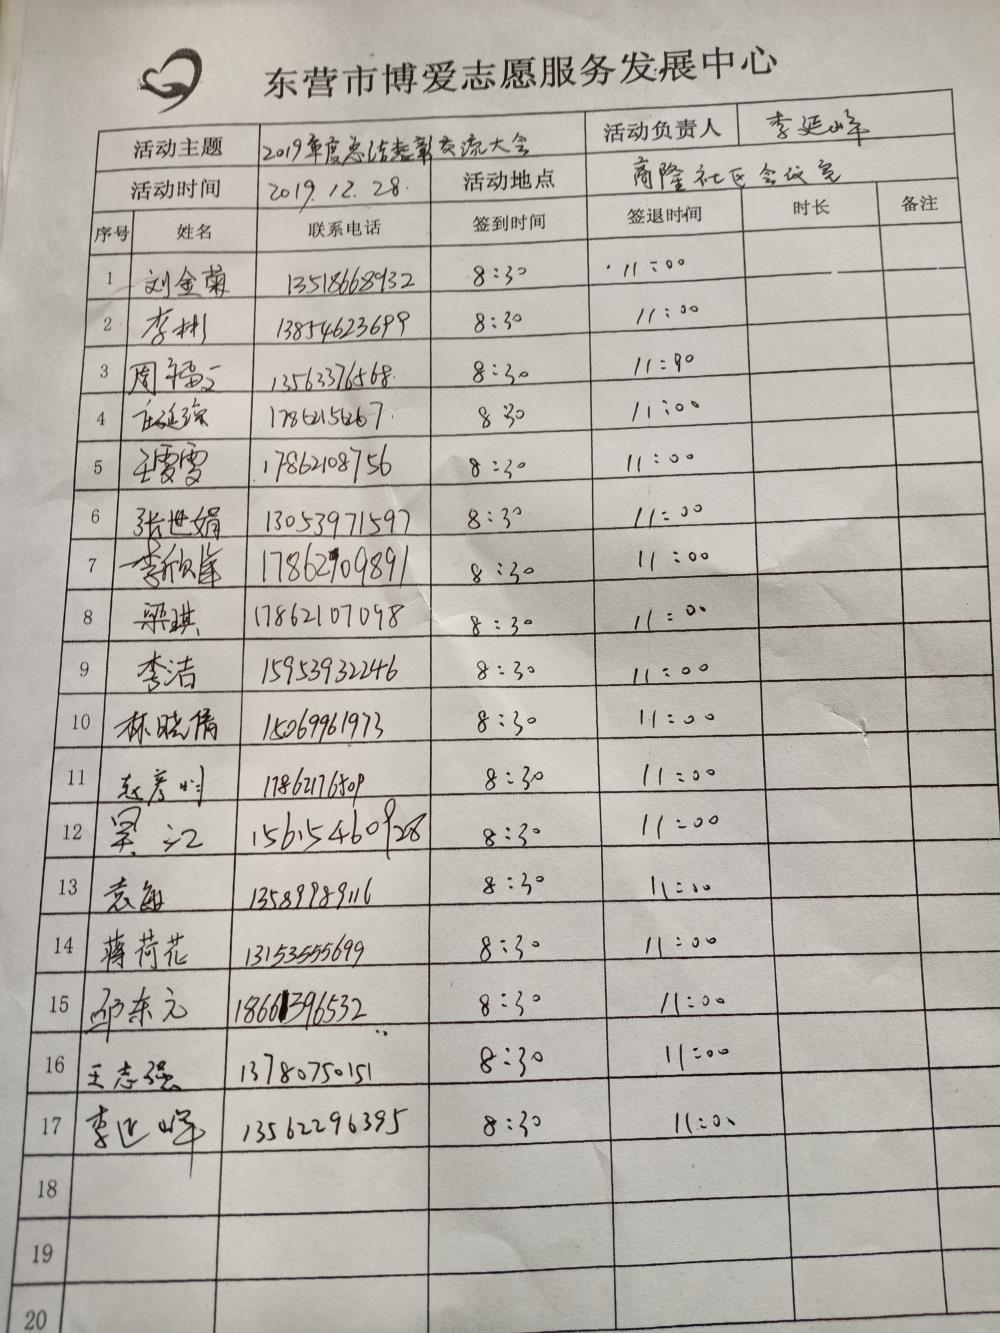 东营市博爱志愿服务发展中心
活动主题 2019年度总结表彰交流大会 活动负责人 李延峰
活动时间 2019.12.28. 活动地点 商隆社区会议室
序号 姓名 联系电话 签到时间 签退时间 时长 备注
1 刘金菊 13518668932 8:30 11:00
2 李彬 13854623699 8:30 11:00
3 周福 13563376568. 8:30 11:00
4 17862156267. 8:30 11:00
5 王雯雯 17862108756 8:30 11:00
6 张世娟 13053971597 8:30 11:00
7 李欣 17862109891 8:30 11:00
8 梁琪 17862107098 8:30 11:00
9 李洁 15953932246 8:30 11:00
10 林晓倩 15069961973 8:30 11:00
11 赵彦 17862176509 8:30 11:00
12 吴江 15615460928 8:30 11:00
13 袁敏 13589989116 8:30 11:00
14 蒋荷花 13153555699 8:30 11:00
15 邱东元 18661396532 8:30 11:00
16 王志强 13780750151 8:30 11:00
17 李延峰 13562296395 8:30 11:00
18
19
20